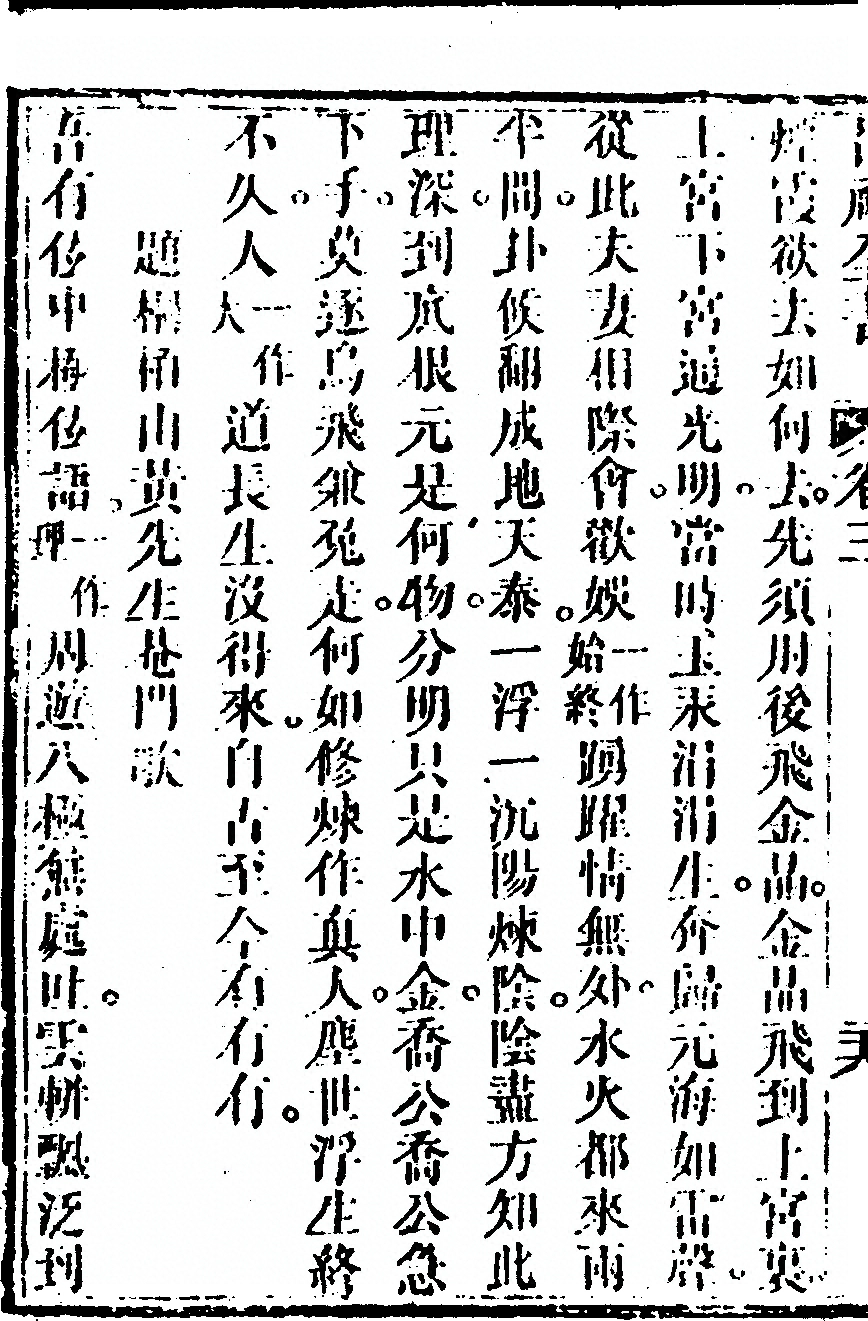 卷三
煙霞欲去如何去先須肘後飛金晶金晶飛到上宮裏
上宮下宮通光明當時玉汞涓涓生奔歸元海如雷聲
從此夫妻相際會歡娛一作始終踴躍情無外水火都來兩
半間卦候翻成地天泰一浮一沉陽煉陰陰盡方知此
理深到底根元是何物分明只是水中金喬公喬公急
下手莫逐烏飛兼兔走何如修煉作真人塵世浮生終
不久人一作大道長生沒得來自古至今有有有
題桐柏山黃先生菴門歌
吾有伭中極伭語一作理周遊八極無處吐雲軿飄泛到